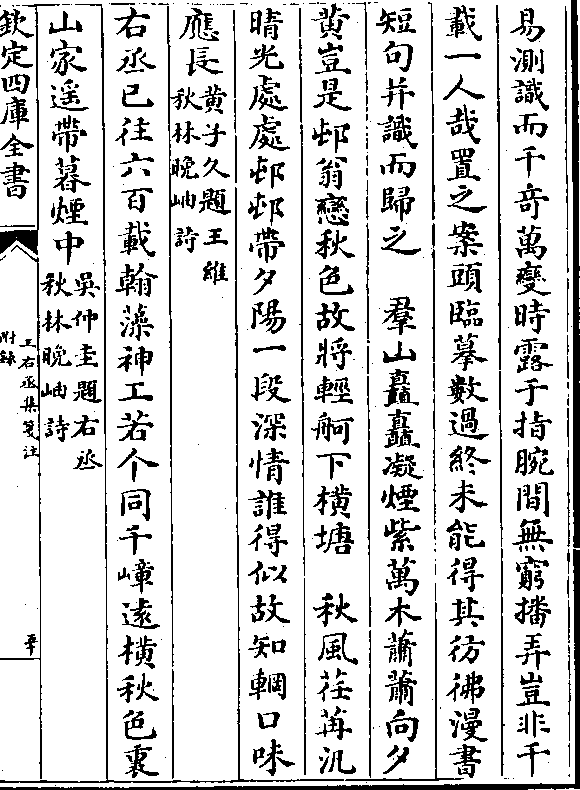 易測識而千竒萬變時露于指腕間無窮播弄豈非千
載一人哉置之案頭臨摹數過終未能得其彷彿漫書
短句并識而歸之　羣山矗矗凝煙紫萬木蕭蕭向夕
黄豈是邨翁戀秋色故將輕舸下横塘　秋風荏苒汎
晴光處處邨邨帶夕陽一段深情誰得似故知輞口味
應長黄子久題王維
秋林晚岫詩
右丞已往六百載翰藻神工若个同千嶂遠横秋色裏
山家遥帶暮煙中吳仲圭題右丞
秋林晚岫詩
欽定四庫全書
王右丞集箋注
附錄